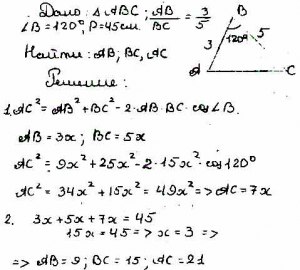 Дано: Δ ABC; AB/BC = 3/5
∠B = 120°, P = 45 см.
Найти: AB; BC, AC
B
3
120°
5
A
C
Решение:
1. AC² = AB² + BC² - 2 · AB · BC · cos∠B.
AB = 3x; BC = 5x
AC² = 9x² + 25x² - 2 · 15x² · cos120°
AC² = 34x² + 15x² = 49x² => AC = 7x
2. 3x + 5x + 7x = 45
15x = 45 => x = 3 =>
=> AB = 9; BC = 15; AC = 21